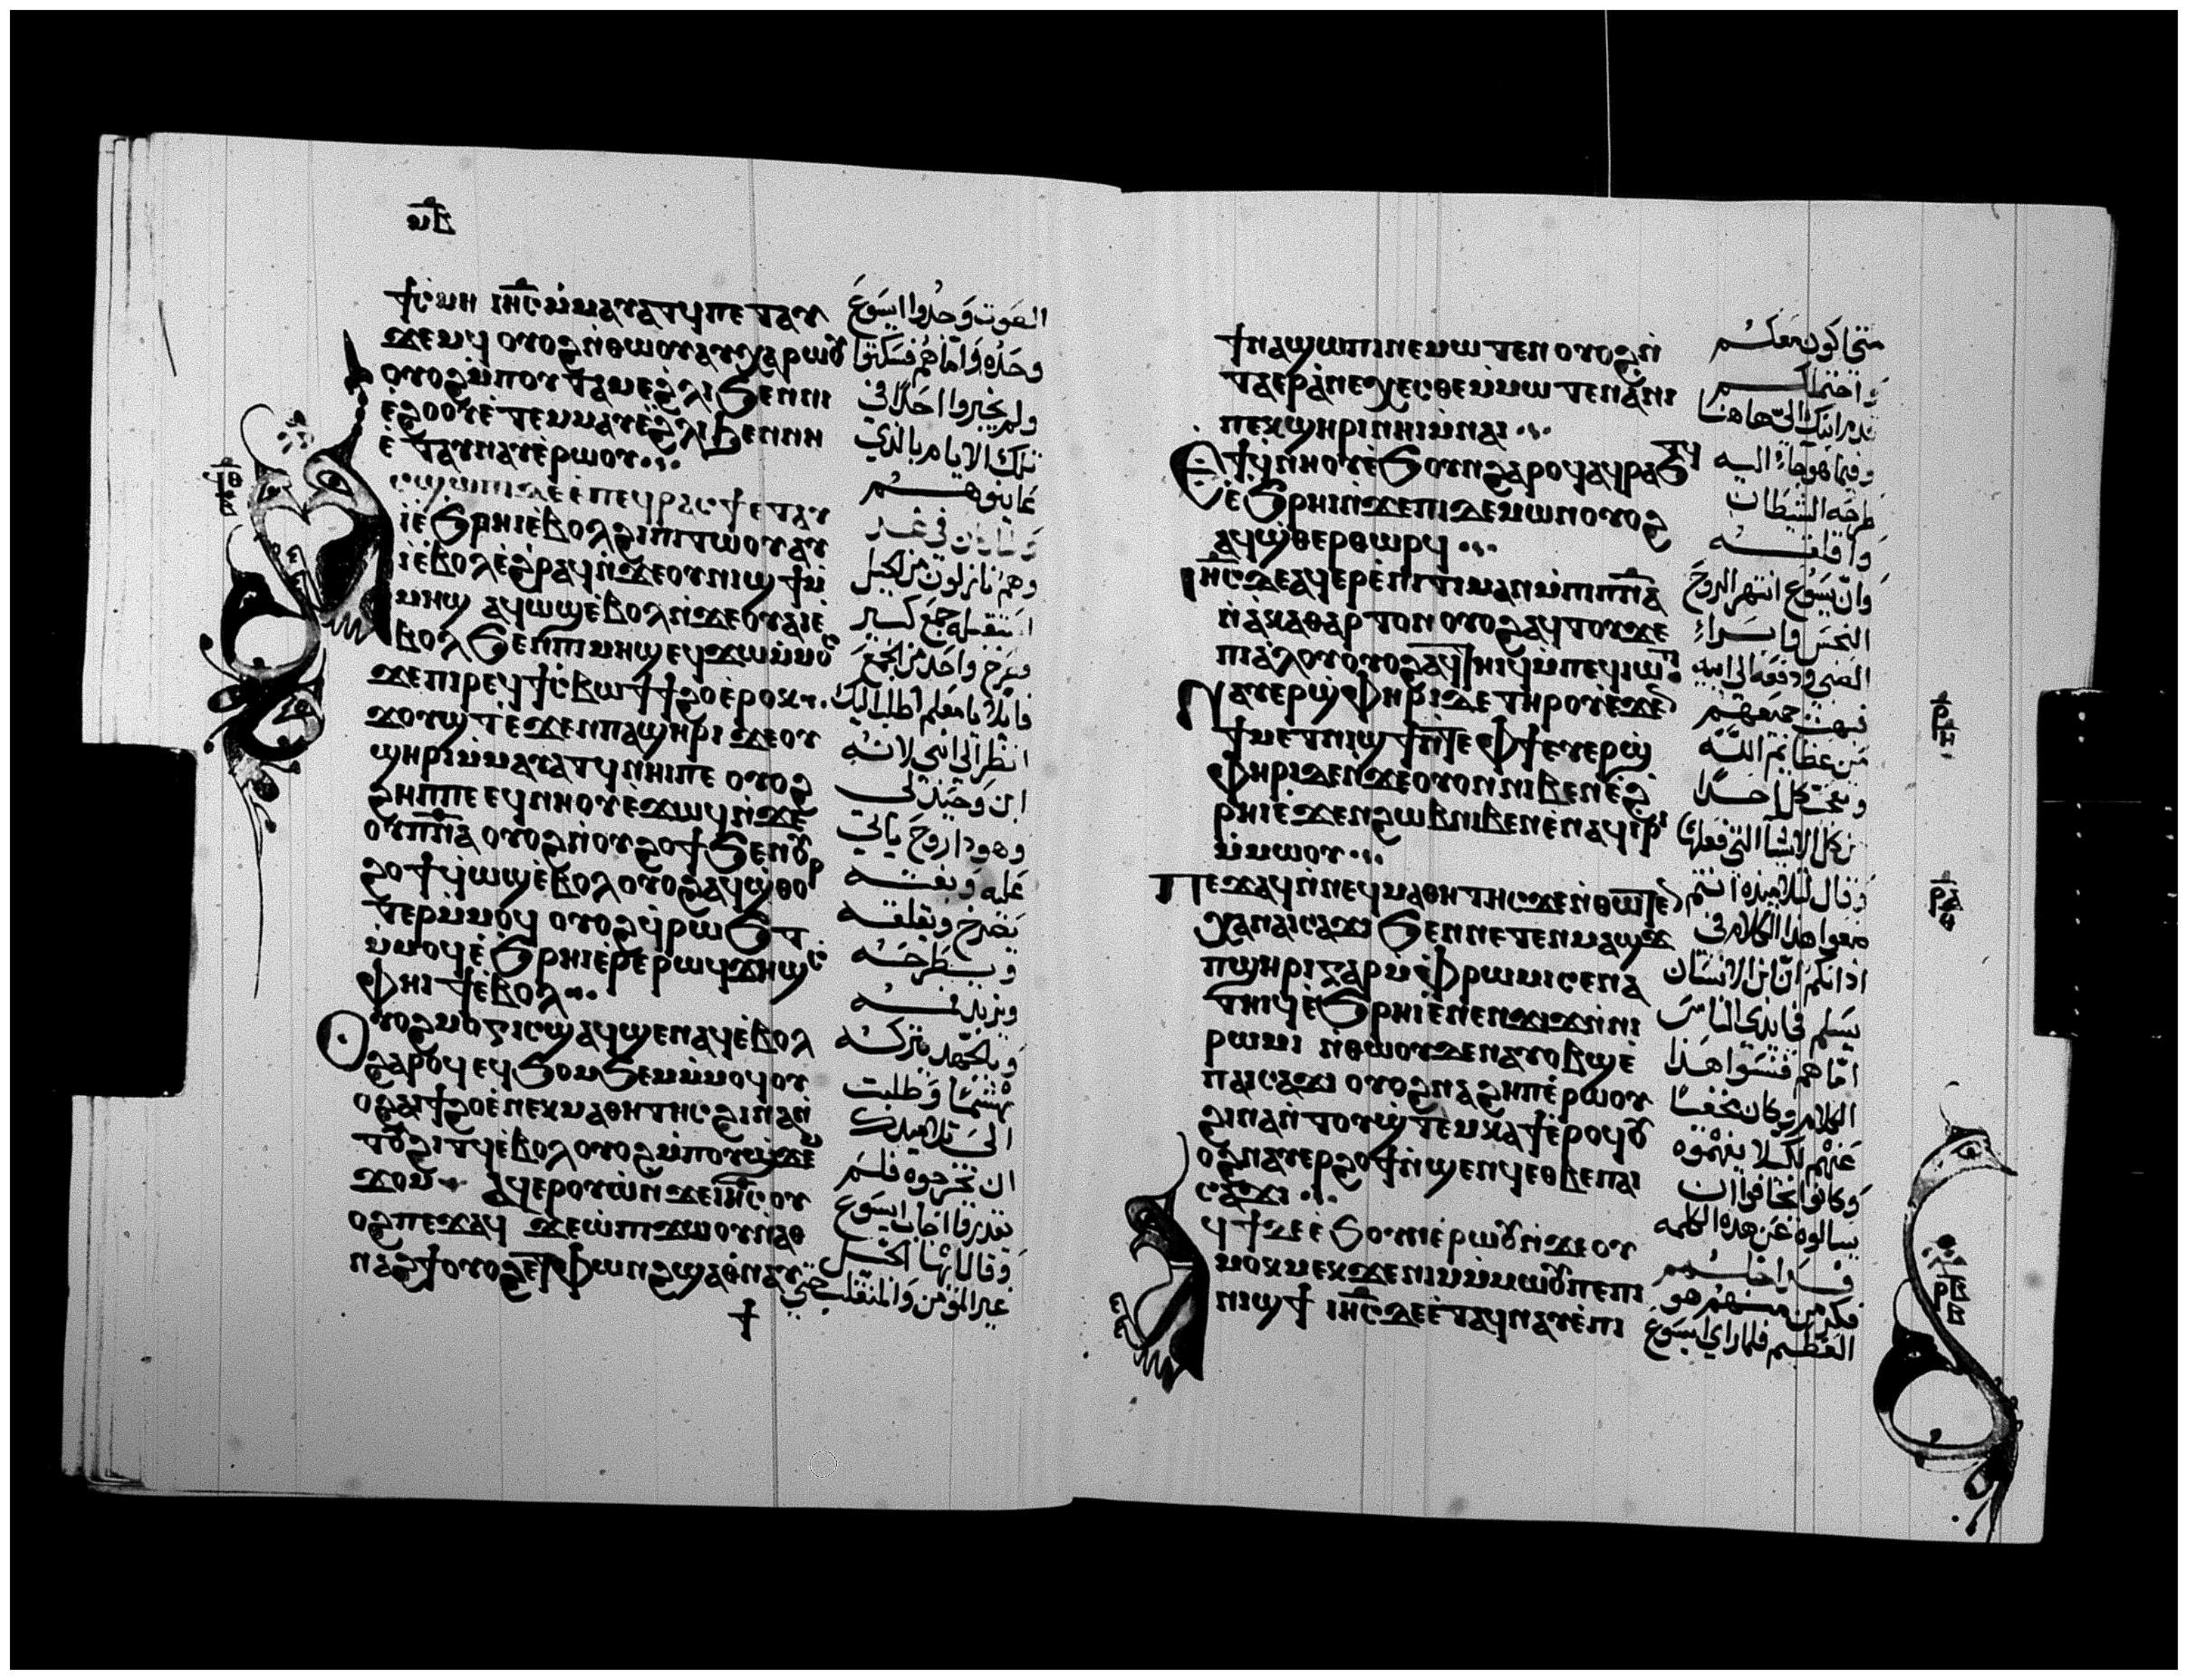 ⲙ̅ⲃ̅
ϯⲥⲙⲏ ⲓⲏ̅ⲥ̅ ⲙ̀ⲙⲁⲩⲁⲧϥ ⲡⲉ ⲧⲁⲩ
ϫⲉⲙϥ ⲟⲩⲟϩ ⲛ̀ⲑⲱⲟⲩ ⲁⲩⲭⲁⲣⲱⲟⲩ
ⲟⲩⲟϩ ⲙ̀ⲡⲟⲩⲧⲁⲙⲉ ϩⲗⲓ ϧⲉⲛ ⲛⲓ
ⲉ̀ϩⲟⲟⲩ ⲉ̀ⲧⲉⲙⲙⲁⲩ ⲉ̀ϩⲗⲓ ϧⲉⲛ ⲛⲏ
ⲉ̀ⲧⲁⲩⲛⲁⲩ ⲉ̀ⲣⲱⲟⲩ
ⲥϣⲱⲡⲓ ⲇⲉ ⲉ̀ⲡⲉϥⲣⲁⲥϯ ⲉⲧⲁⲩ
ⲓ̀ ⲉ̀ϧⲣⲏⲓ ⲉ̀ⲃⲟⲗ ϩⲓ ⲡⲓⲧⲱⲟⲩ ⲁⲩ
ⲓ̀ ⲉ̀ⲃⲟⲗ ⲉ̀ϩⲣⲁϥ ⲛ̀ϫⲉ ⲟⲩⲛⲓϣϯ ⲙ̀
ⲙⲏϣ ⲁϥⲱϣ ⲉ̀ⲃⲟⲗ ⲛ̀ϫⲉ ⲟⲩⲁⲓ ⲉ̀
ⲃⲟⲗ ϧⲉⲛ ⲡⲓⲙⲏϣ ⲉϥϫⲱ ⲙ̀ⲙⲟⲥ
ϫⲉ ⲡⲓⲣⲉϥϯⲥⲃⲱ ϯϯϩⲟ ⲉ̀ⲣⲟⲕ
ϫⲟⲩϣⲧ ⲉ̀ϫⲉⲛ ⲡⲁϣⲏⲣⲓ ϫⲉ ⲟⲩ
ϣⲏⲣⲓ ⲙ̀ⲙⲁⲩⲁⲧϥ ⲛⲏⲓ ⲡⲉ ⲟⲩⲟϩ
ϩⲏⲡⲡⲉ ⲉϥⲛⲏⲟⲩ ⲉ̀ϫⲱϥ ⲛ̀ϫⲉ
ⲟⲩⲡⲛ̅ⲁ̅ ⲟⲩⲟϩ ⲛ̀ⲟⲩϩⲟϯ ϧⲉⲛ ⲟⲩ
ϩⲟϯ ϥ̀ⲱϣ ⲉ̀ⲃⲟⲗ ⲟⲩⲟϩ ⲁϥϣ̀ⲑⲟⲣ
ⲧⲉⲣ ⲙ̀ⲙⲟϥ ⲟⲩⲟϩ ϥ̀ⲣⲱϧⲧ
ⲙ̀ⲙⲟϥ ⲉ̀ϧⲣⲏⲓ ⲉ̀ⲣⲉ ⲣⲱϥ ϫⲏϣ ⲥ
ⲫⲏⲓϯ ⲉ̀ⲃⲟⲗ
ⲟⲩⲟϩ ⲙⲟⲅⲓⲥ ϣⲁϥϣⲉⲛⲁϥ ⲉ̀ⲃⲟⲗ
ϩⲁⲣⲟϥ ⲉϥϧⲟⲙϧⲉⲙ ⲙ̀ⲙⲟϥ ⲟⲩ
ⲟϩ ⲁⲓϯϩⲟ ⲉ̀ⲛⲉⲕⲙⲁⲑⲏⲧⲏⲥ ϩⲓⲛⲁ ⲛ̀
ⲧⲟⲩϩⲓⲧϥ ⲉ̀ⲃⲟⲗ ⲟⲩⲟϩ ⲙ̀ⲡⲟⲩϣ̀ϫⲉⲙ
ϫⲟⲙ ⲁϥⲉⲣⲟⲩⲱ̀ ⲛ̀ϫⲉ ⲓⲏ̅ⲥ̅ ⲟⲩ
ⲟϩ ⲡⲉϫⲁϥ ϫⲉ ⲱ̀ ⲡⲓϫⲱⲟⲩ ⲛ̀ⲁⲑ
ⲛⲁϩϯ ⲟⲩⲟϩ ⲉⲧⲫⲱⲛϩ ϣⲁ ⲑ̀ⲛⲁⲩ
الصوت وجدوا ايسوع
وحده واما هم فسكتوا
ولم يخبروا احدا في
تلك الايام بالذي
عاينوهم
وكان في غد
وهم نازلون من الجبل
استقبله جمع كبير
فصرخ واحد من الجمع
قايلا يا معلم اطلب اليك
انظر الى ابني لانه
ابن وحيد لي
وهوذا روح ياتي
عليه وبغتة
يصرخ ويقلقه
ويطرحه
ويزبد
وبالجهد يتركه
مهشما وطلبت
الى تلاميذك
ان يخرجوه فلم
يقدروا اجاب ايسوع
وقال ايها الجيل
غير المومن والمنقلب حتى
ϯⲛⲁϣⲱⲡⲓ ⲛⲉⲙⲱⲧⲉⲛ ⲟⲩⲟϩ ⲛ̀
ⲧⲁⲉⲣⲁ̀ⲛⲉⲭⲉⲥⲑⲉ ⲙ̀ⲙⲱⲧⲉⲛ ⲁ̀ⲛⲓ
ⲡⲉⲕϣⲏⲣⲓ ⲛⲏⲓ ⲙ̀ⲛⲁⲓ
ⲉⲧⲓ ϥ̀ⲛⲏⲟⲩ ⲉ̀ϧⲟⲩⲛ ϩⲁⲣⲟϥ ⲁϥⲣⲁϧⲧϥ
ⲉ̀ϧⲣⲏⲓ ⲛ̀ϫⲉ ⲡⲓⲇⲉⲙⲱⲛ ⲟⲩⲟϩ
ⲁϥϣ̀ⲑⲉⲣⲑⲱⲣϥ
ⲓⲏ̅ⲥ̅ ⲇⲉ ⲁϥⲉⲣⲉ̀ⲡⲓⲧⲓⲙⲁⲛ ⲙ̀ⲡⲓⲡⲛ̅ⲁ̅
ⲛ̀ⲁ̀ⲕⲁⲑⲁⲣⲧⲟⲛ ⲟⲩⲟϩ ⲁϥⲧⲟⲩϫⲉ
ⲡⲓⲁ̀ⲗⲟⲩ ⲟⲩⲟϩ ⲁϥⲧⲏⲓϥ ⲙ̀ⲡⲉϥⲓⲱⲧ
ⲛⲁⲩⲉⲣϣ̀ⲫⲏⲣⲓ ⲇⲉ ⲧⲏⲣⲟⲩ ⲉ̀ϫⲉⲛ
ϯⲙⲉⲧⲛⲓϣϯ ⲛ̀ⲧⲉ ⲫϯ ⲉⲩⲉⲣϣ̀
ⲫⲏⲣⲓ ⲇⲉ ⲛ̀ϫⲉ ⲟⲩⲟⲛ ⲛⲓⲃⲉⲛ ⲉ̀ϩ
ⲣⲏⲓ ⲉ̀ϫⲉⲛ ϩⲱⲃ ⲛⲓⲃⲉⲛ ⲉ̀ⲛⲁϥⲓⲣⲓ
ⲙ̀ⲙⲱⲟⲩ
ⲡⲉϫⲁϥ ⲛ̀ⲛⲉϥⲙⲁⲑⲏⲧⲏⲥ ϫⲉ ⲛ̀ⲑⲱⲧⲉⲛ
ⲭⲁ ⲛⲁⲓⲥⲁϫⲓ ϧⲉⲛ ⲛⲉⲧⲉⲛⲙⲁϣϫ
ⲡϣⲏⲣⲓ ⲅⲁⲣ ⲙ̀ⲫⲣⲱⲙⲓ ⲥⲉⲛⲁ
ⲧⲏⲓϥ ⲉ̀ϧⲣⲏⲓ ⲉ̀ⲛⲉⲛϫⲓϫ ⲛ̀ⲛⲓ
ⲣⲱⲙⲓ ⲛ̀ⲑⲱⲟⲩ ⲇⲉ ⲛⲁⲩⲟⲃϣ ⲉ̀
ⲡⲁⲓⲥⲁϫⲓ ⲟⲩⲟϩ ⲛⲁϩⲏⲡ ⲉ̀ⲣⲱⲟⲩ
ϩⲓⲛⲁ ⲛ̀ⲧⲟⲩϣ̀ⲧⲉⲙⲕⲁϯ ⲉ̀ⲣⲟϥ ⲟⲩ
ⲟϩ ⲛⲁⲩⲉⲣϩⲟϯ ⲛ̀ϣⲉⲛϥ ⲉⲑⲃⲉ ⲡⲁⲓ
ⲥⲁϫⲓ
ϥ̀ⲓ ⲇⲉ ⲉ̀ϧⲟⲩⲛ ⲉ̀ⲣⲱⲟⲩ ⲛ̀ϫⲉ ⲟⲩ
ⲙⲟⲕⲙⲉⲕ ϫⲉ ⲛⲓⲙ ⲙ̀ⲙⲱⲟⲩ ⲡⲉ ⲡⲓ
ⲛⲓϣϯ ⲓⲏ̅ⲥ̅ ⲇⲉ ⲉ̀ⲧⲁϥⲛⲁⲩ ⲉ̀ⲛⲓ
متى اكون معكم
واحتملكم
قدم ابنك الي هاهنا
وفيما هو جاء اليه
طرحه الشيطان
واقلقه
وان يسوع انتهر الروح
النجس وابرا
الصبي ودفعه الى ابيه
فبهت جميعهم
من عظايم الله
وتعجب كل احد
من كل الاشيا التي فعلها
وقال لتلاميذه انتم
ضعوا هذا الكلام في
اذانكم ان ابن الانسان
يسلم في ايدي الناس
اما هم فنسوا هذا
الكلام وكان مخفيا
عنهم لكيلا يفهموه
وكانوا يخافوا ان
يسالوه عن هذه الكلمه
فكر من منهم هو
العظيم فلما راى ايسوع